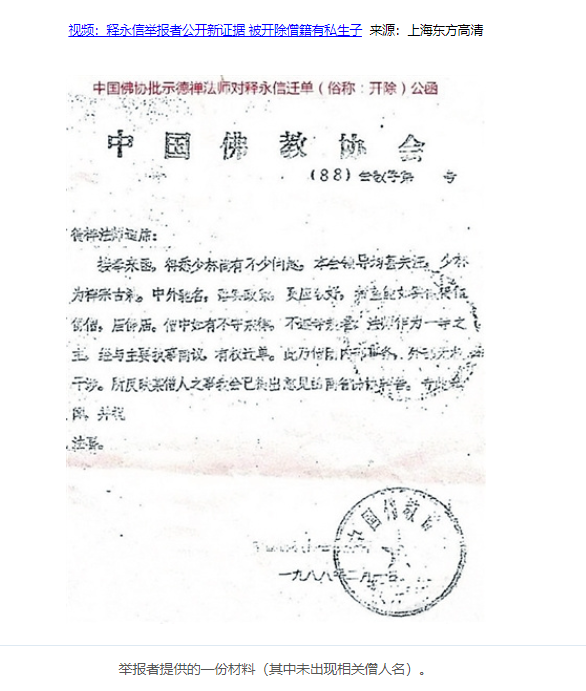 视频：释永信举报者公开新证据 被开除僧籍有私生子 来源：上海东方高清
中国佛协批示德禅法师对释永信迁单（俗称：开除）公函
中国佛教协会
(88) 会教字第 号
德禅法师道席：
接奉来函，得悉少林尚有不少问题，本会领导均甚关注，少林
为禅宗古刹，中外驰名，
僧，尼僧居，僧中如有不守戒律、不遵寺规者，法师作为一寺之
主，经与主要执事商议，有权迁单。此乃僧团内部事务，外
干涉。所反映某僧人之事我会已提出意见
函，并祝
法乐。
中国佛教
一九八八年二月一日
举报者提供的一份材料（其中未出现相关僧人名）。